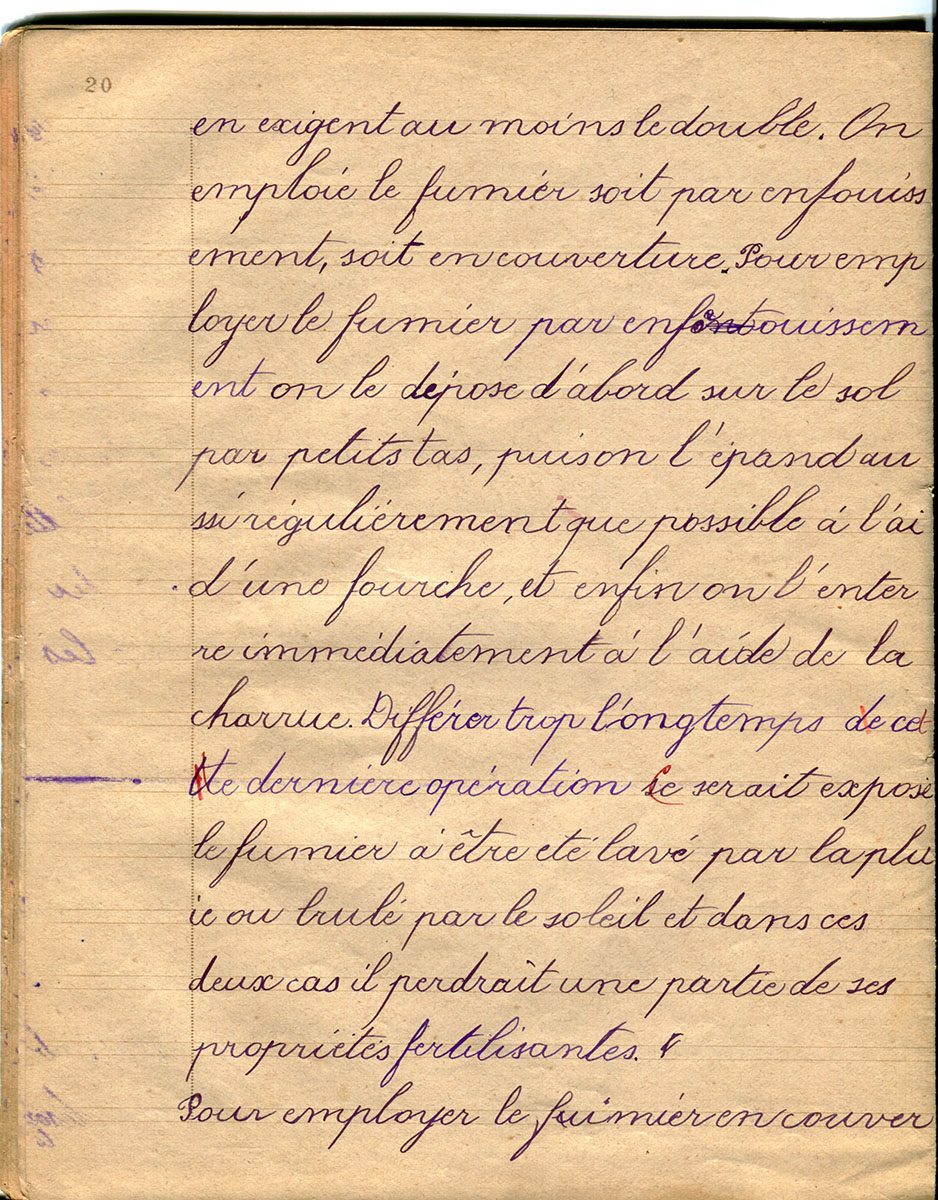 20
en exigent au moins le double. On
emploie le fumiér soit par enfouiss
ement, soit en couverture. Pour emp
loyer le fumier par enfouissem
ent on le dépose d'abord sur le sol
par petits tas, puis on l'épand au
ssi réguliérement que possible á l'ai
d'une fourche, et enfin on l'enter
re immédiatement á l'aide de la
charrue. Différer trop l'ongtemps de cet
te derniére opération se serait exposé
le fumier á être eté lavé par la plu
ie ou brulé par le soleil et dans ces
deux cas il perdraît une partie de ses
propriétés fertilisantes.
Pour employer le fuimiér en couver